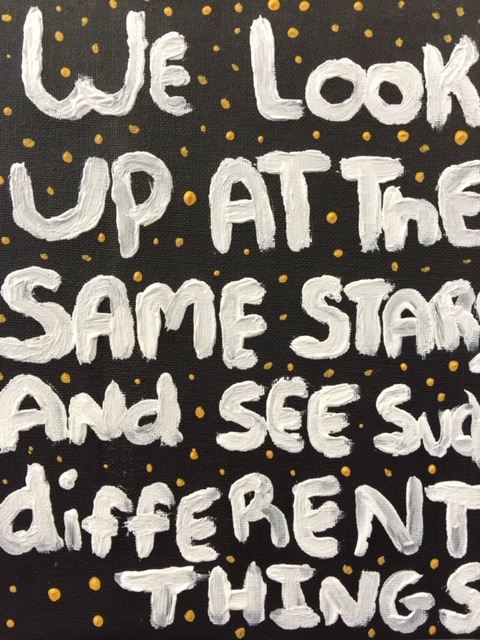 WE LOOK
UP AT ThE
SAME STARS
And SEE Suc
diffERENT
THINGS